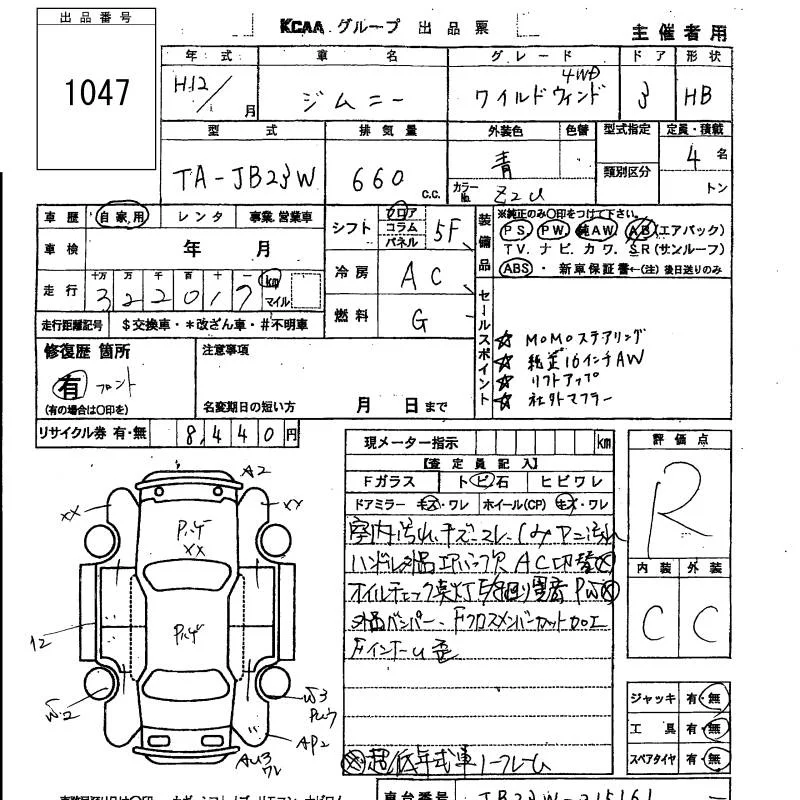 出品番号
1047
KCAAグループ 出品票
主催者用
年式 車名 グレード ドア 形状
H12/ 月 ジムニー 4WD ワイルドウィンド 3 HB
型式 排気量 外装色 色替 型式指定 定員・積載
TA-JB23W 660 c.c. 青 類別区分 4名
カラーNo. Z2U トン
車歴 自家用 レンタ 事業、営業車
シフト フロア コラム パネル 5F
装備品 ※純正のみ〇印をつけて下さい。
PS PW 純AW AB(エアバック)
TV. ナビ. カワ. SR(サンルーフ)
ABS ・ 新車保証書←(注)後日送りのみ
車検 年 月
冷房 AC
走行 十万 万 千 百 十 一
322017 km マイル
燃料 G
走行距離記号 $交換車・*改ざん車・#不明車
セールスポイント
☆ MOMOステアリング
☆ 純正16インチAW
☆ リフトアップ
☆ 社外マフラー
修復歴 箇所 注意事項
有 フロント
(有の場合は〇印を) 名変期日の短い方 月 日まで
リサイクル券 有・無 8,440円
現メーター指示 km
評価点
R
【査定員記入】
Fガラス トビ石 ヒビワレ
ドアミラー キズ・ワレ ホイール(CP) キズ・ワレ
室内汚れ、キズ・コレ・しみ
内装 外装
C C
外品バンパー、Fクロスメンバーカット加工
FインナーU歪
ジャッキ 有・無
工具 有・無
スペアタイヤ 有・無
超低年式車
A2
XX XX
XX
12
W2
W3
AP2
AU3
ワレ
車台番号 JB23W-215161